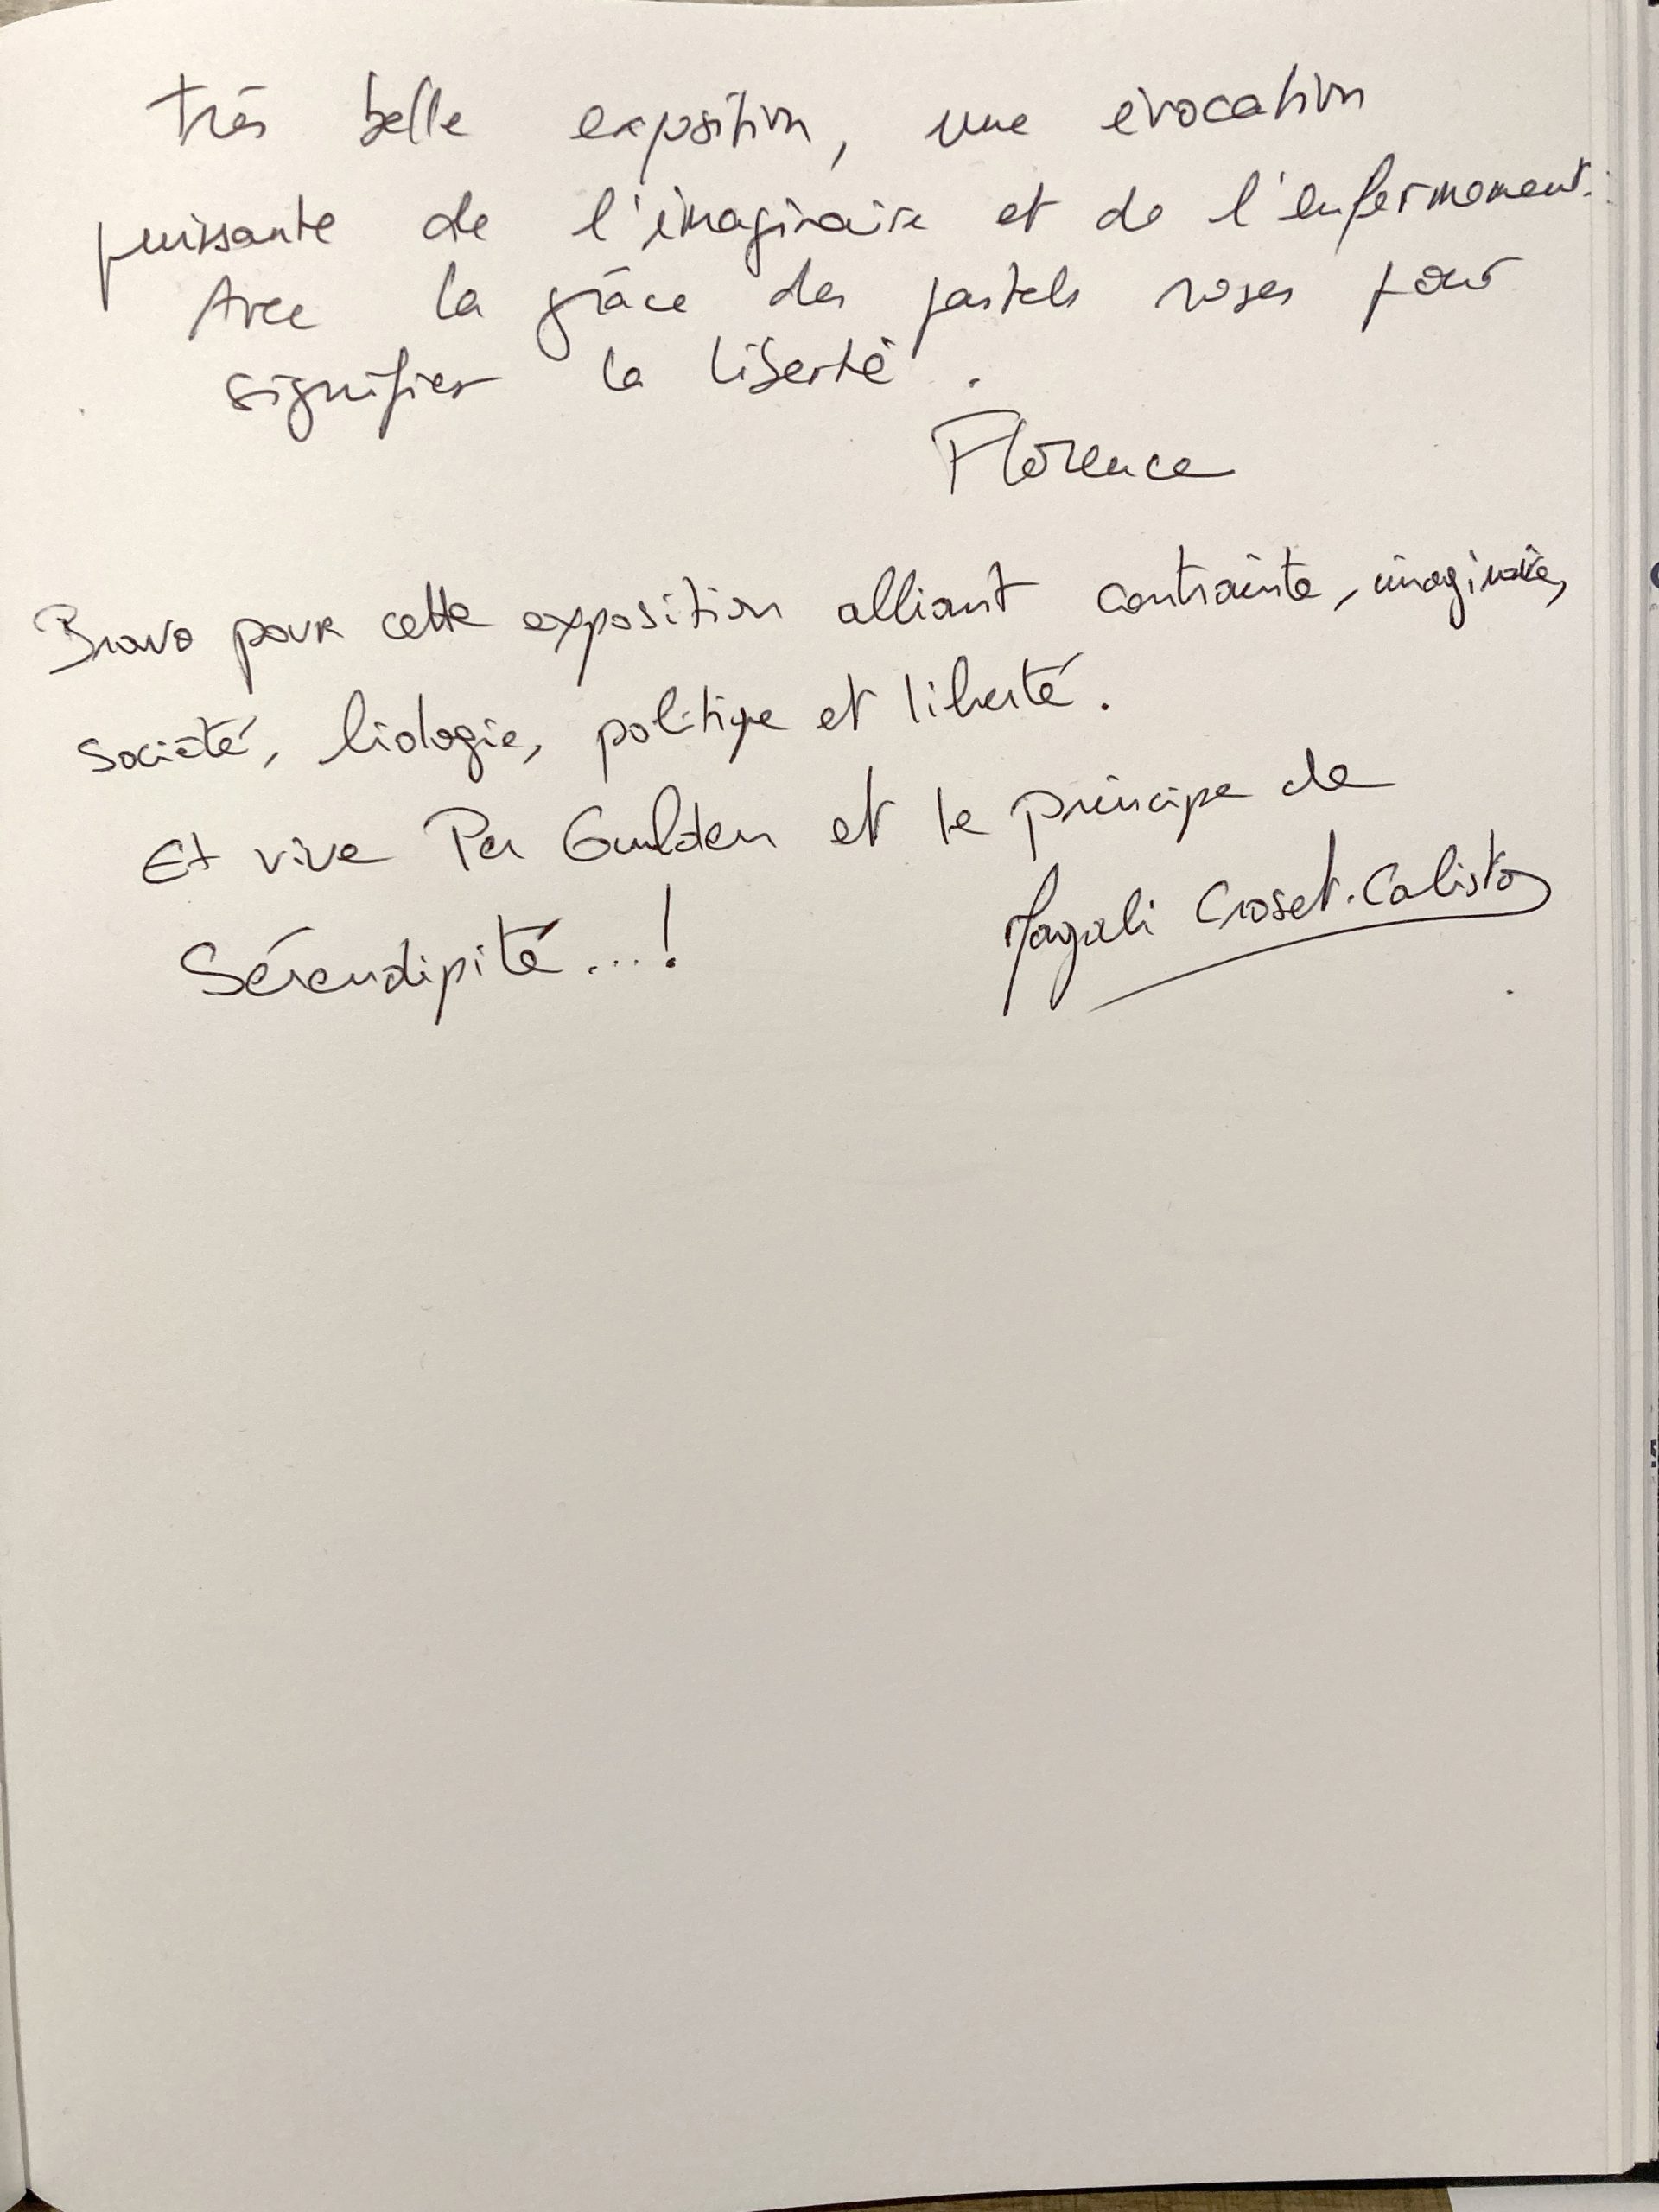 Très belle exposition, une évocation
puissante de l'imaginaire et de l'enfermement.
Avec la grâce des pastels roses pour
signifier la liberté.
Florence
Bravo pour cette exposition alliant contrainte, imaginaire,
société, biologie, politique et liberté.
Et vive Per Gulden et le principe de
Sérendipité...!
Magali Croset-Calisto